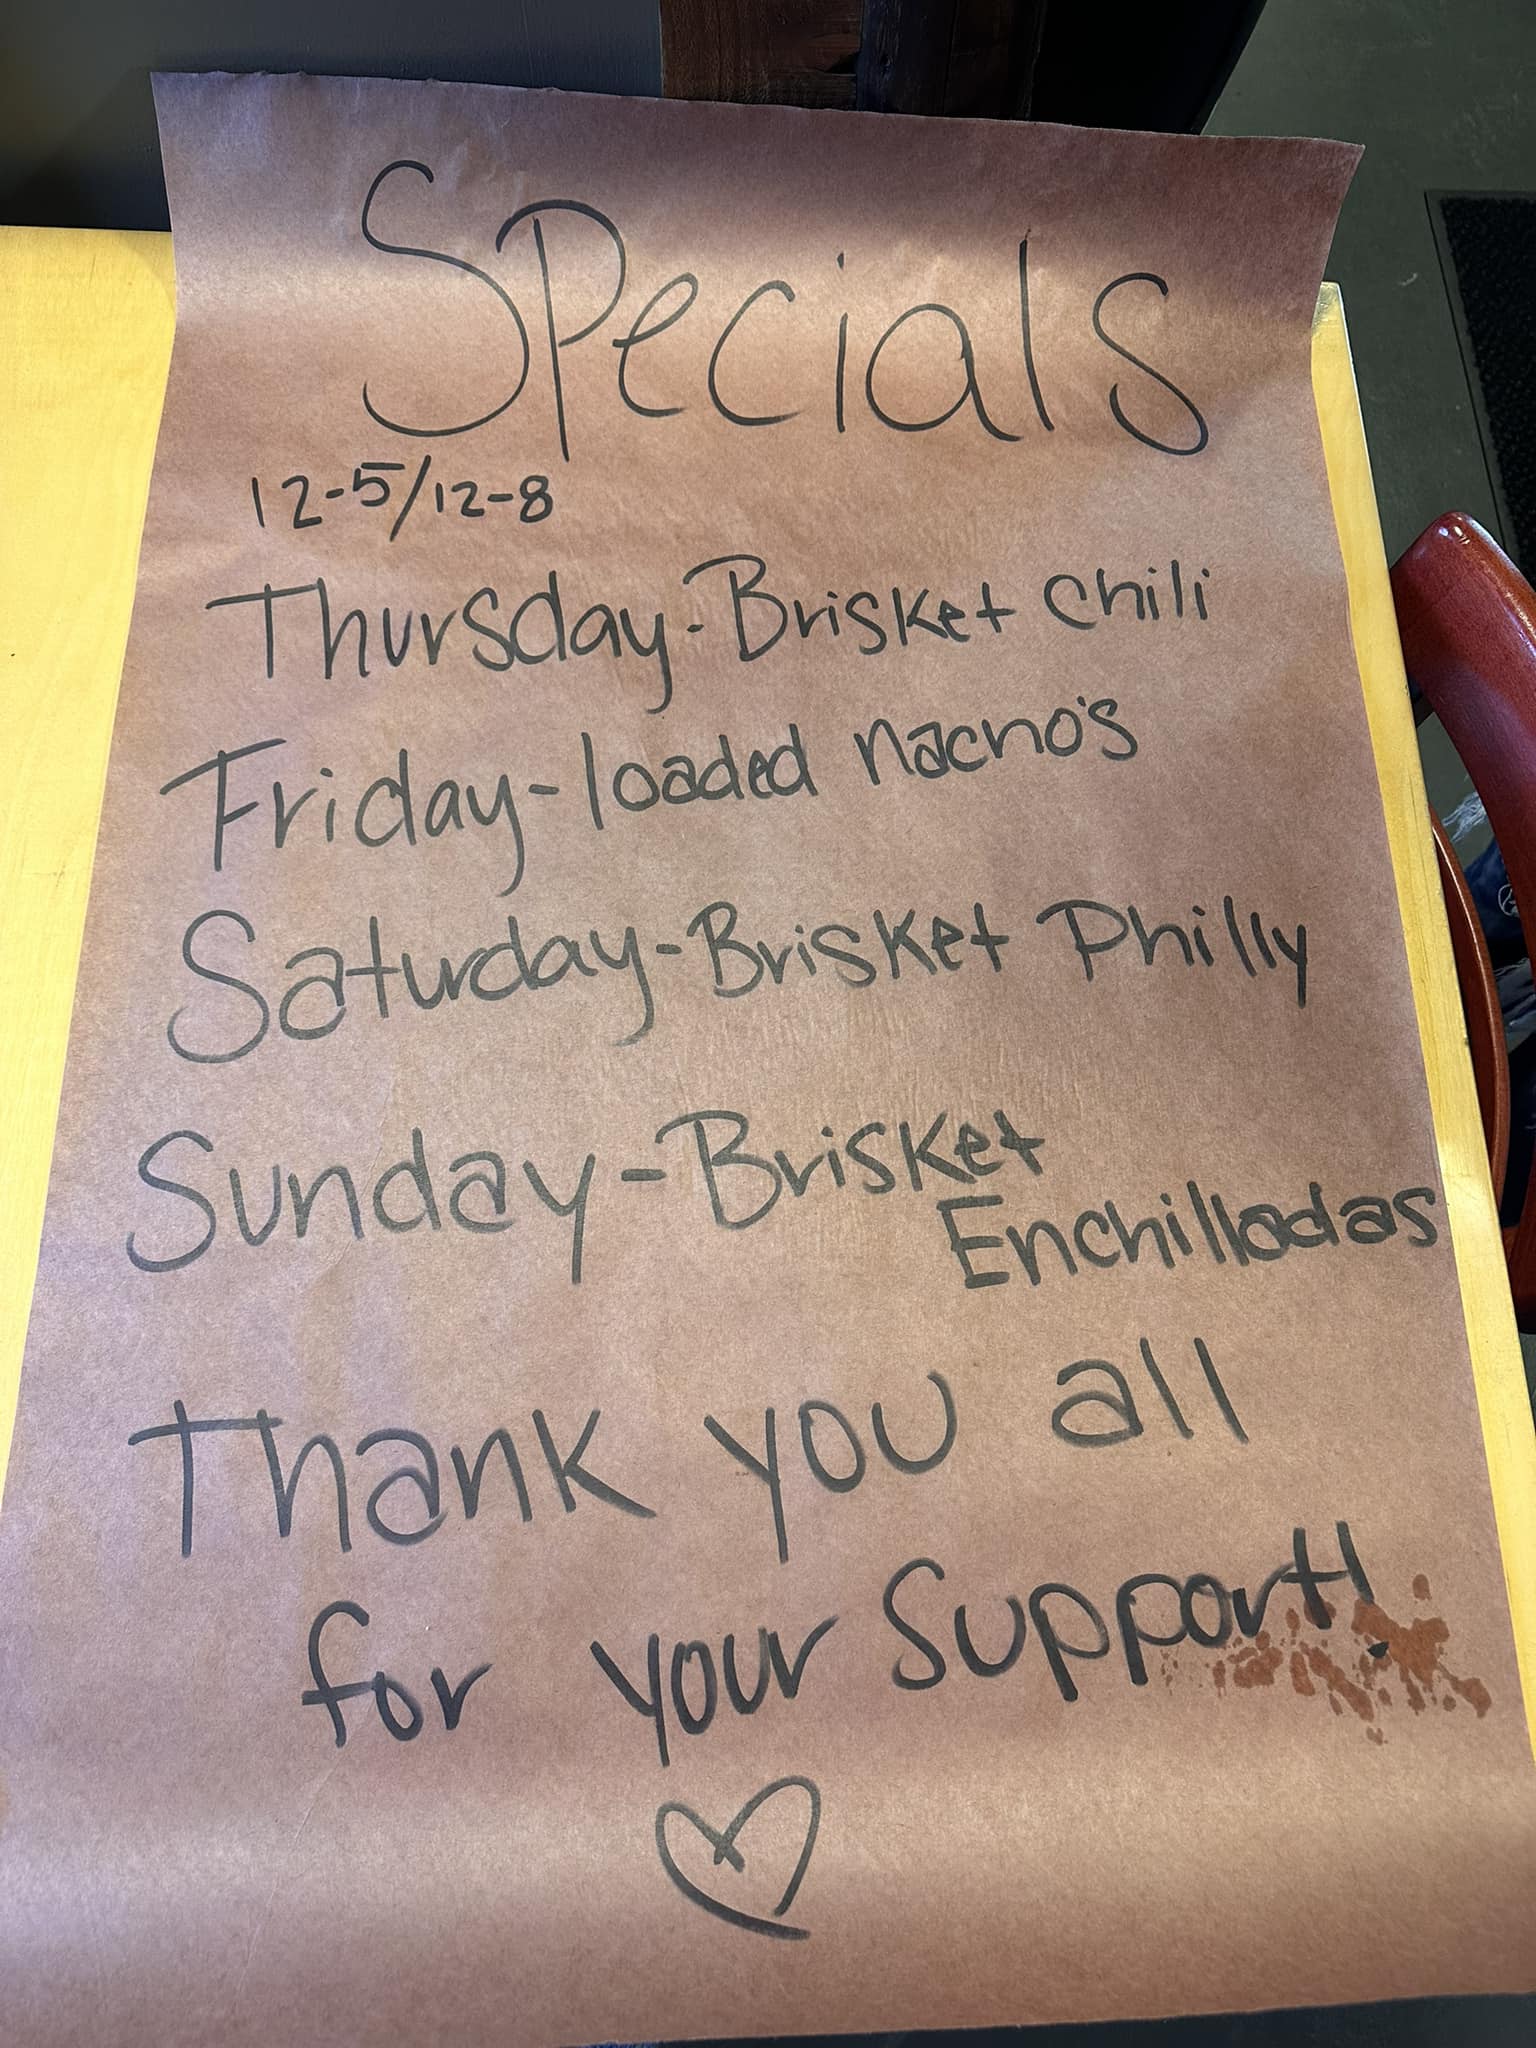 Specials
12-5/12-8
Thursday-Brisket chili
Friday-loaded nacho's
Saturday-Brisket Philly
Sunday-Brisket
Enchilladas
Thank you all
for your Support!